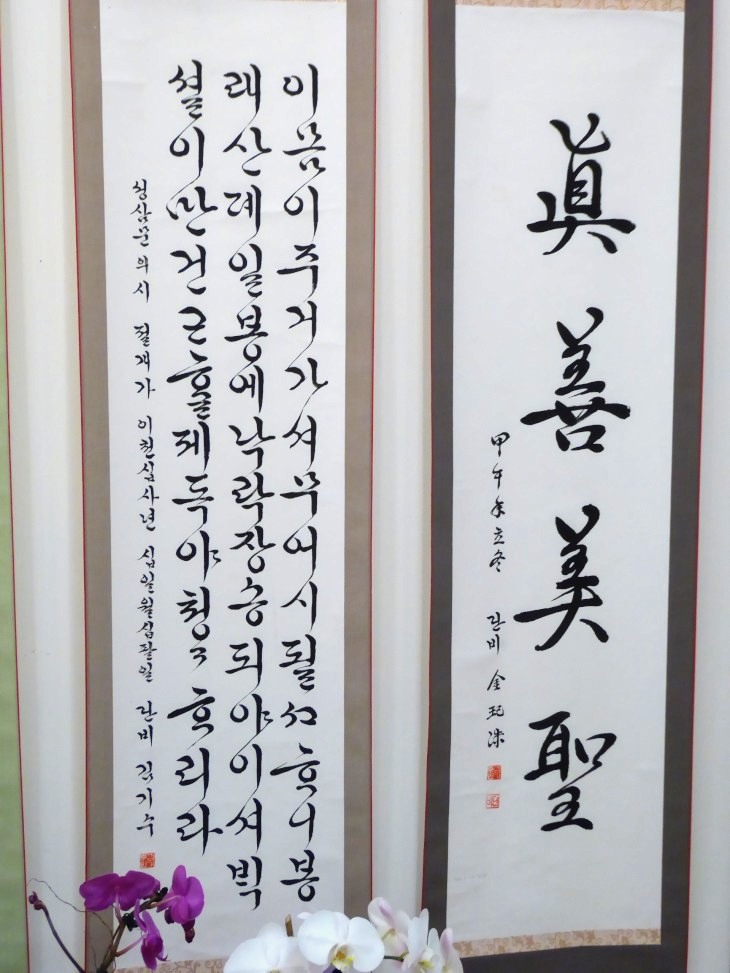 眞善美聖
甲午年立冬 란비 金玘洙
이몸이주거가셔무어시될ᄭᅩᄒᆞ니봉
래산뎨일봉에낙락장숑되야이셔ᄇᆡᆨ
셜이만건곤ᄒᆞᆯ제독야쳥〻ᄒᆞ리라
성삼문의시 절개가 이천십사년 십일월십팔일 란비 김기수